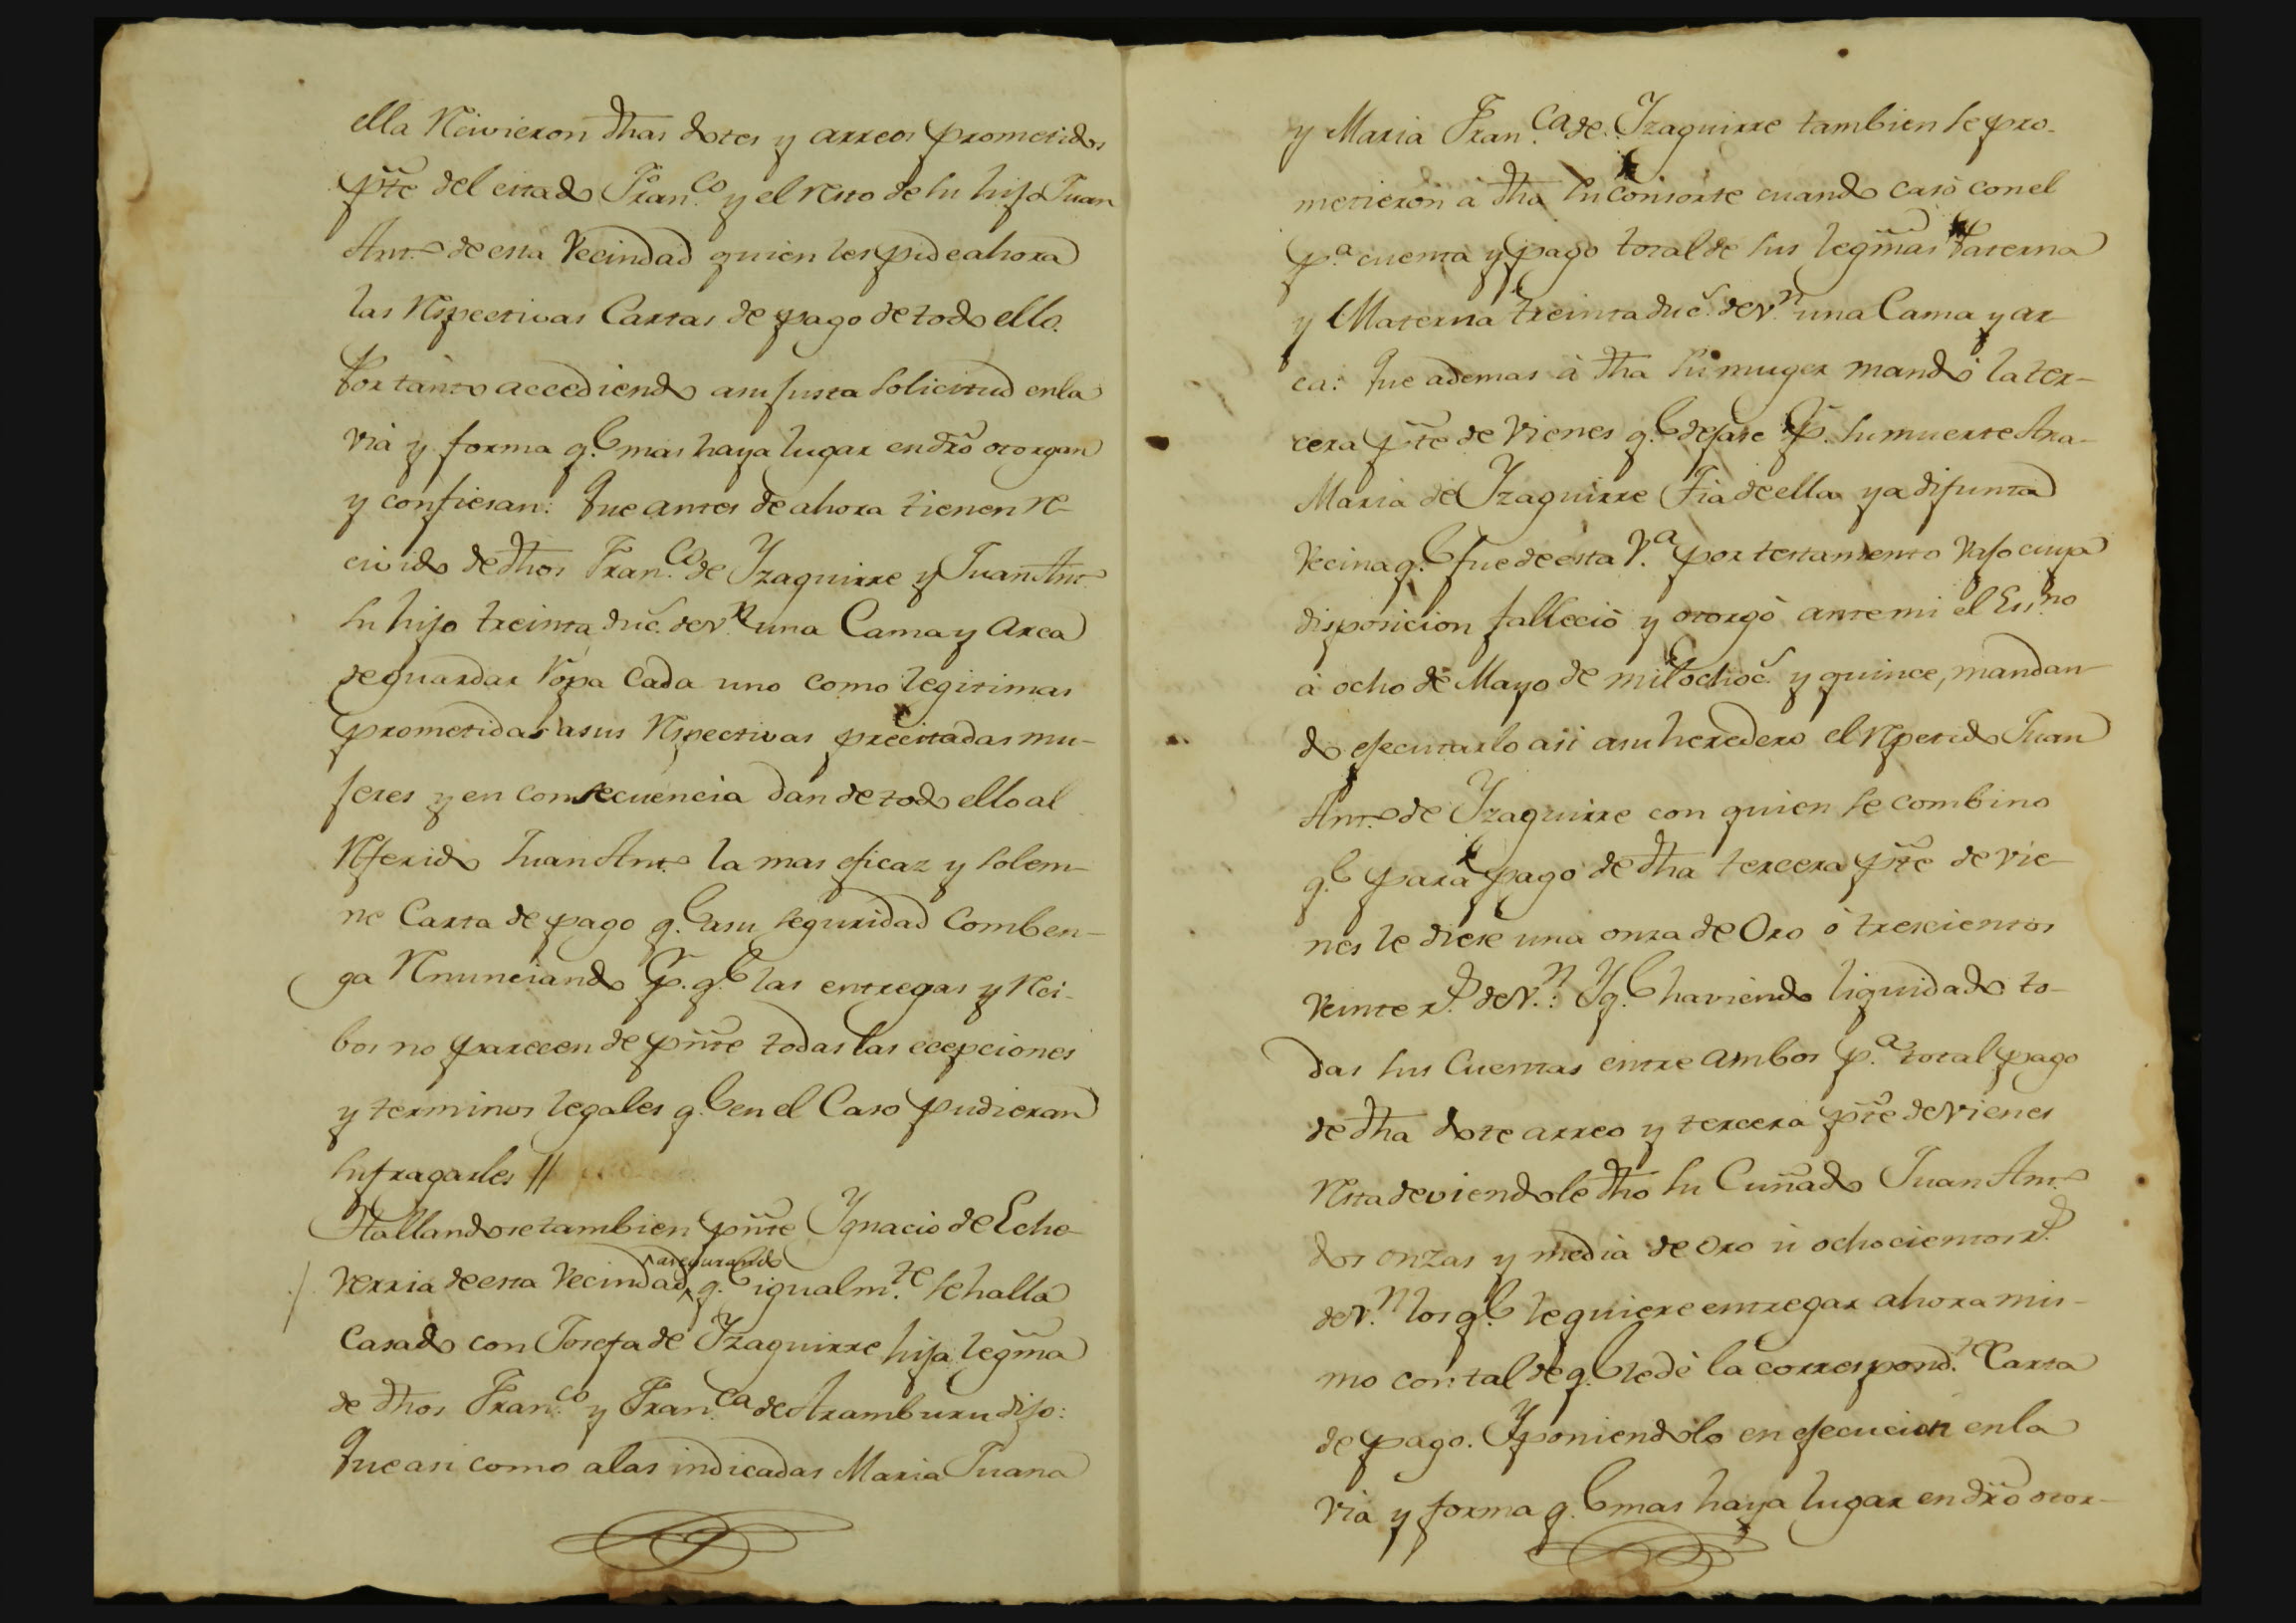 ella Rēcivieron dhas dotes y arreos prometidos
pte del citado Franco y el resto de su hijo Juan
Anto de esta Vecindad quien les pide ahora
las Respectivas Cartas de pago de todo ello.
Por tanto accediendo a su justa Solicitud en la
via y forma q.e mas haya lugar en dro otorgan
y confiesan: Que antes de ahora tienen re-
civido de dhos Fran.co de Yzaguirre y Juan Anto
su hijo treinta duc.s de v.n una Cama y Arca
de guardar Ropa Cada uno como legitimas
prometidas a sus Respectivas precitadas mu-
jeres y en consecuencia dan de todo ello al
Referido Juan Anto la mas eficaz y solem-
ne Carta de pago q.e a su seguridad Comben-
ga Renunciando p.r q.e las entregas y Reci-
bos no parecen de pnte todas las ecepciones
y terminos legales q.e en el Caso pudieran
sufragarles //
Hallandose tambien pnte Ygnacio de Eche-
verria de esta Vecindad ^asegurando q.e igualm.te se halla
Casado con Josefa de Yzaguirre hija legma
de dhos Fran.co y Fran.ca de Aramburu dijo:
Que asi como a las indicadas Maria Juana
y Maria Fran.ca de Yzaguirre tambien se pro-
metieron à dha su consorte cuando casò con el
p.a cuenta y pago total de sus legmas Paterna
y Materna treinta duc.s de v.n una Cama y ar-
ca: Que ademas à dha su muger mandò la ter-
cera pte de Vienes q.e dejase p.r su muerte Ana
Maria de Yzaguirre Tia de ella ya difunta
Vecina q.e fue de esta V.a por testamento vajo cuya
disposicion falleciò y otorgò ante mi el Ess.no
à ocho de Mayo de mil ochoc.s y quince, mandan-
do ejecutarlo asi a su heredero el Repetido Juan
Anto de Yzaguirre con quien se combino
q.e para pago de dha tercera pte de vie-
nes le diese una onza de Oro ò trescientos
veinte r.s de v.n: Y q.e haviendo liquidado to-
das sus Cuentas entre ambos p.a total pago
de dha dote arreo y tercera pte de vienes
Resta deviendole dho su Cuñado Juan Anto
dos onzas y media de oro ù ochocientos r.s
de v.n los q.e le quiere entregar ahora mis-
mo con tal de q.e le dè la correspond.te Carta
de pago. Y poniendolo en ejecucion en la
via y forma q.e mas haya lugar en dro otor-